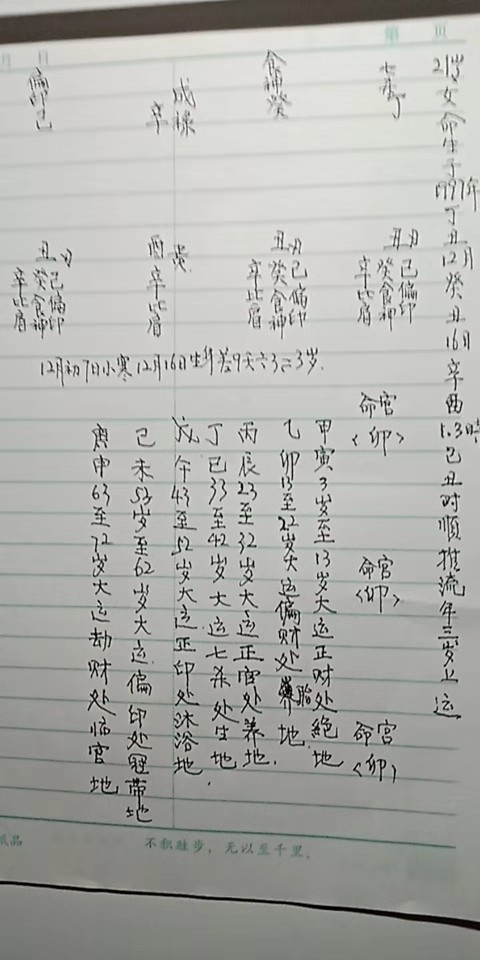 月 日
第 页
21岁女命生于1997年丁丑12月癸丑16日辛酉1.3時己丑时顺推流年三岁上运
七杀丁
食神癸
成禄
辛
偏印己
丑月
己偏印
癸食神
辛比肩
丑月
己偏印
癸食神
辛比肩
酉
辛比肩
丑月
己偏印
癸食神
辛比肩
12月初7日小寒12月16日生年差9天六3二3岁.
命宫
<卯>
命宫
<卯>
命宫
<卯>
甲寅3岁至13岁大运正财处絶地
乙卯13至22岁大运偏财处胎地.
丙辰23至32岁大运正官处养地.
丁巳33至42岁大运七杀处生地.
戊午43至52岁大运正印处沐浴地
己未53岁至62岁大运偏印处冠带地
庚申63至72岁大运劫财处临官地
纸品
不积跬步，无以至千里。